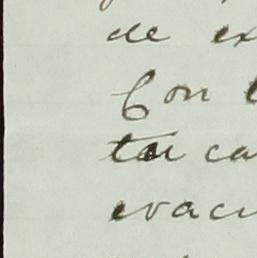 de ex
Con
tar ca
evacu